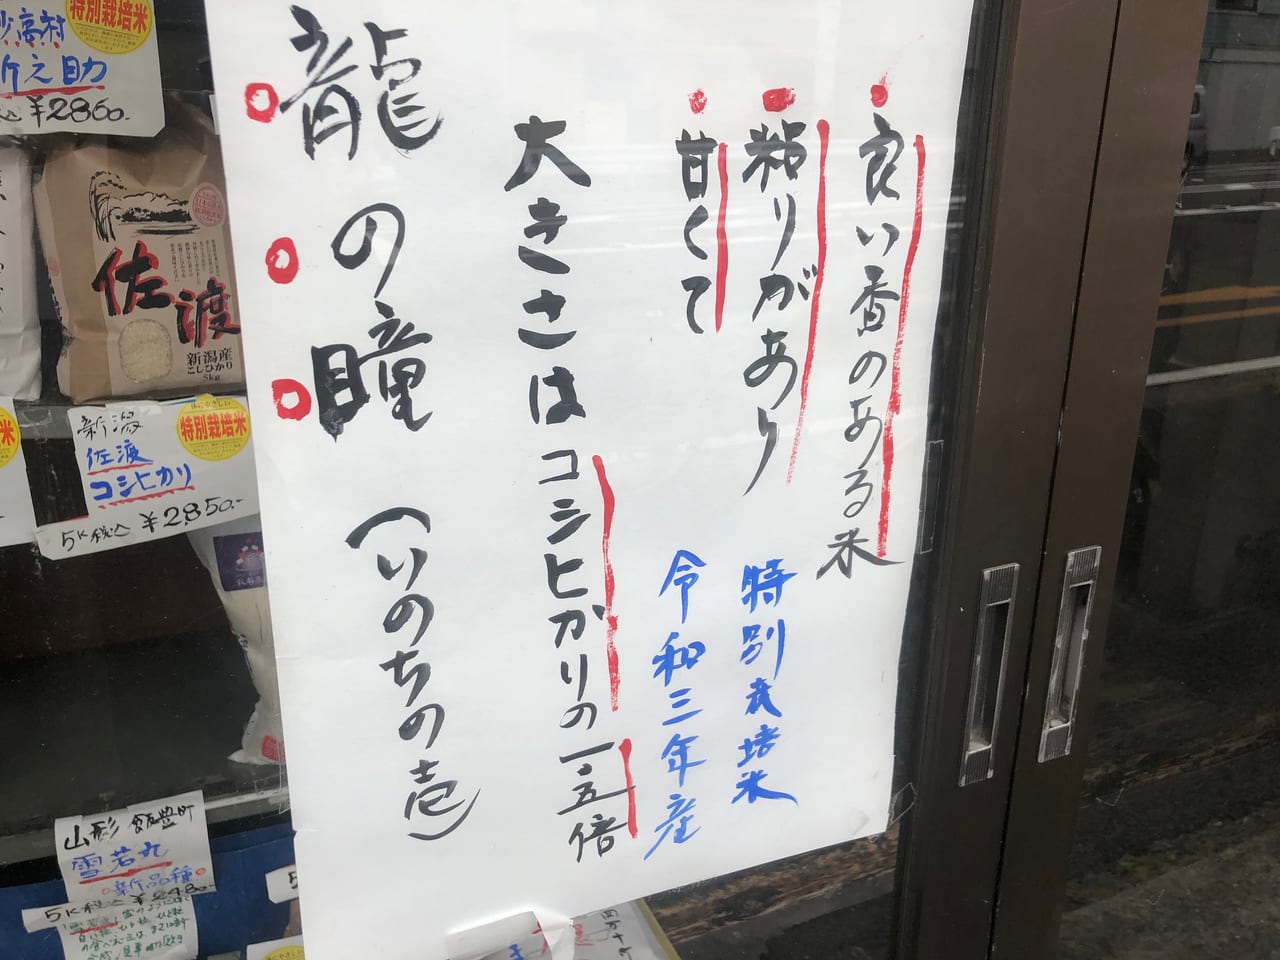 良い香のある米
粘りがあり
甘くて
特別栽培米
令和三年産
大きさはコシヒカリの一・五倍
龍の瞳(いのちの壱)
特別栽培米
新之助
¥2860.-
佐渡
新潟産
こしひかり
5kg
新潟
佐渡
コシヒカリ
特別栽培米
5K税込¥2850.-
山形 飯豊町
雪若丸
新品種
5K税込
四万十町